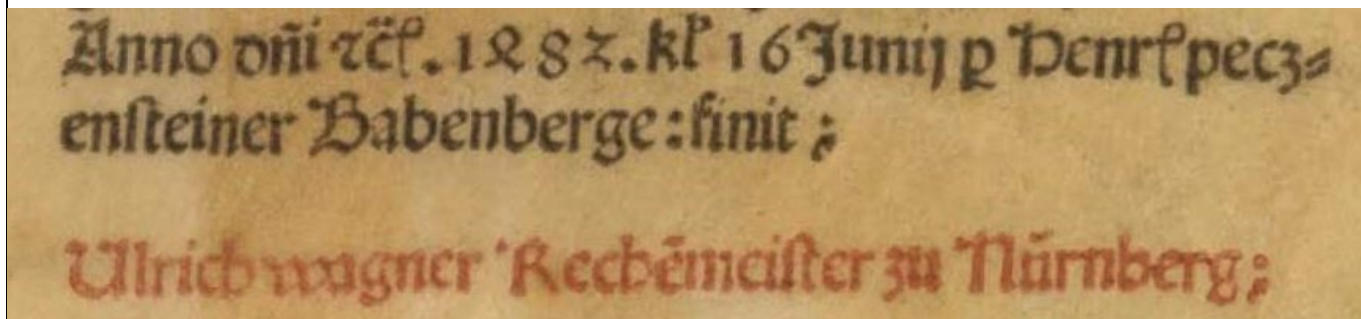 Anno dñi ⁊c̃ꝭ. 1482. kl̓ 16 Junij ꝑ Henrꝭ pecz⸗
enſteiner Babenberge: finit ;
Ulrich wagner Rechēmeiſter zu Nůrnberg ;